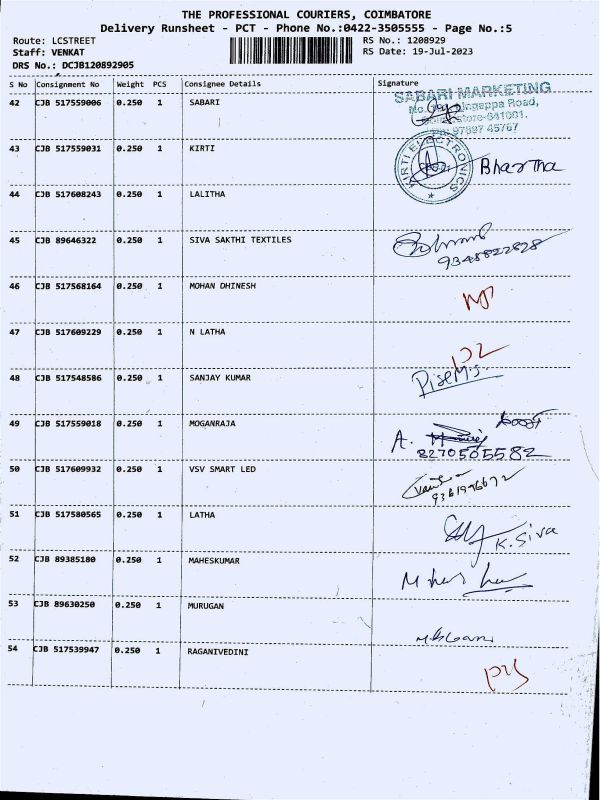 THE PROFESSIONAL COURIERS, COIMBATORE
Delivery Runsheet - PCT - Phone No.:0422-3505555 - Page No.:5
Route: LCSTREET RS No.: 1208929
Staff: VENKAT RS Date: 19-Jul-2023
DRS No.: DCJB120892905
S No Consignment No Weight PCS Consignee Details Signature
42 CJB 517559006 0.250 1 SABARI
SABARI MARKETING
Road,
641001.
97897 45767
43 CJB 517559031 0.250 1 KIRTI
KIRTI ELECTRONICS
Bhartha
44 CJB 517608243 0.250 1 LALITHA
45 CJB 89646322 0.250 1 SIVA SAKTHI TEXTILES
9345822828
46 CJB 517568164 0.250 1 MOHAN DHINESH
47 CJB 517609229 0.250 1 N LATHA
48 CJB 517548586 0.250 1 SANJAY KUMAR
49 CJB 517559018 0.250 1 MOGANRAJA
A.
8270505582
50 CJB 517609932 0.250 1 VSV SMART LED
51 CJB 517580565 0.250 1 LATHA
K. Siva
52 CJB 89385180 0.250 1 MAHESKUMAR
53 CJB 89630250 0.250 1 MURUGAN
54 CJB 517539947 0.250 1 RAGANIVEDINI